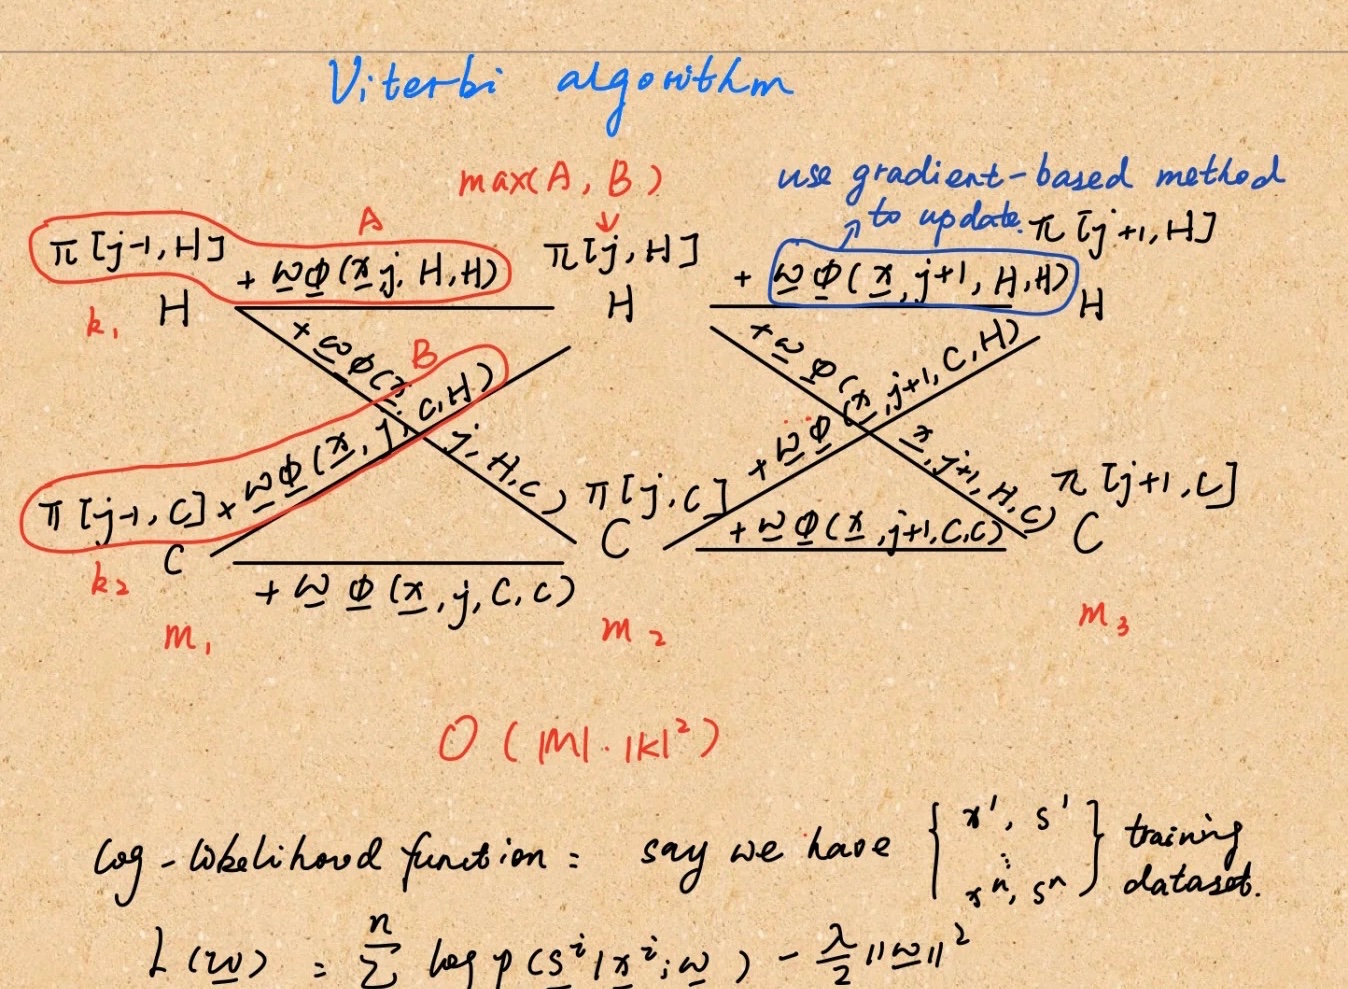 Viterbi algorithm
max(A, B)
use gradient-based method
to update.
A
π[j-1, H]
+ wΦ(x, j, H, H)
π[j, H]
+ wΦ(x, j+1, H, H)
π[j+1, H]
k₁
H
H
H
+ wΦ(x, j, H, C)
B
π[j-1, C] + wΦ(x, j, C, H)
+ wΦ(x, j+1, H, C)
+ wΦ(x, j+1, C, H)
π[j, C]
π[j+1, C]
k₂
C
C
C
+ wΦ(x, j, C, C)
+ wΦ(x, j+1, C, C)
m₁
m₂
m₃
O(|M|·|k|²)
log-likelihood function: say we have { x¹, s¹ ⋮ xⁿ, sⁿ } training dataset.
L(w) = ⁿΣ log p(sⁱ|xⁱ; w) - λ/2 ||w||²